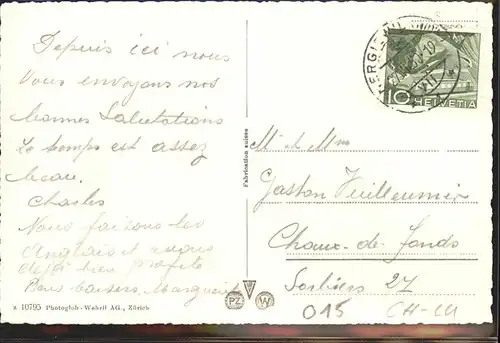 Depuis ici nous
Vous envoyons nos
bonnes Salutations
Le temps est assez
beau.
Charles
Nous faisons les
Anglais et avons
déjà bien profité
Bons baisers Marguerite
R 10795 Photoglob - Wehrli AG., Zürich
Fabrication suisse
PZ
W
10
HELVETIA
M et Mme
Gaston Vuilleumier
Chaux-de-Fonds
Sorbiers 27
015 CH-